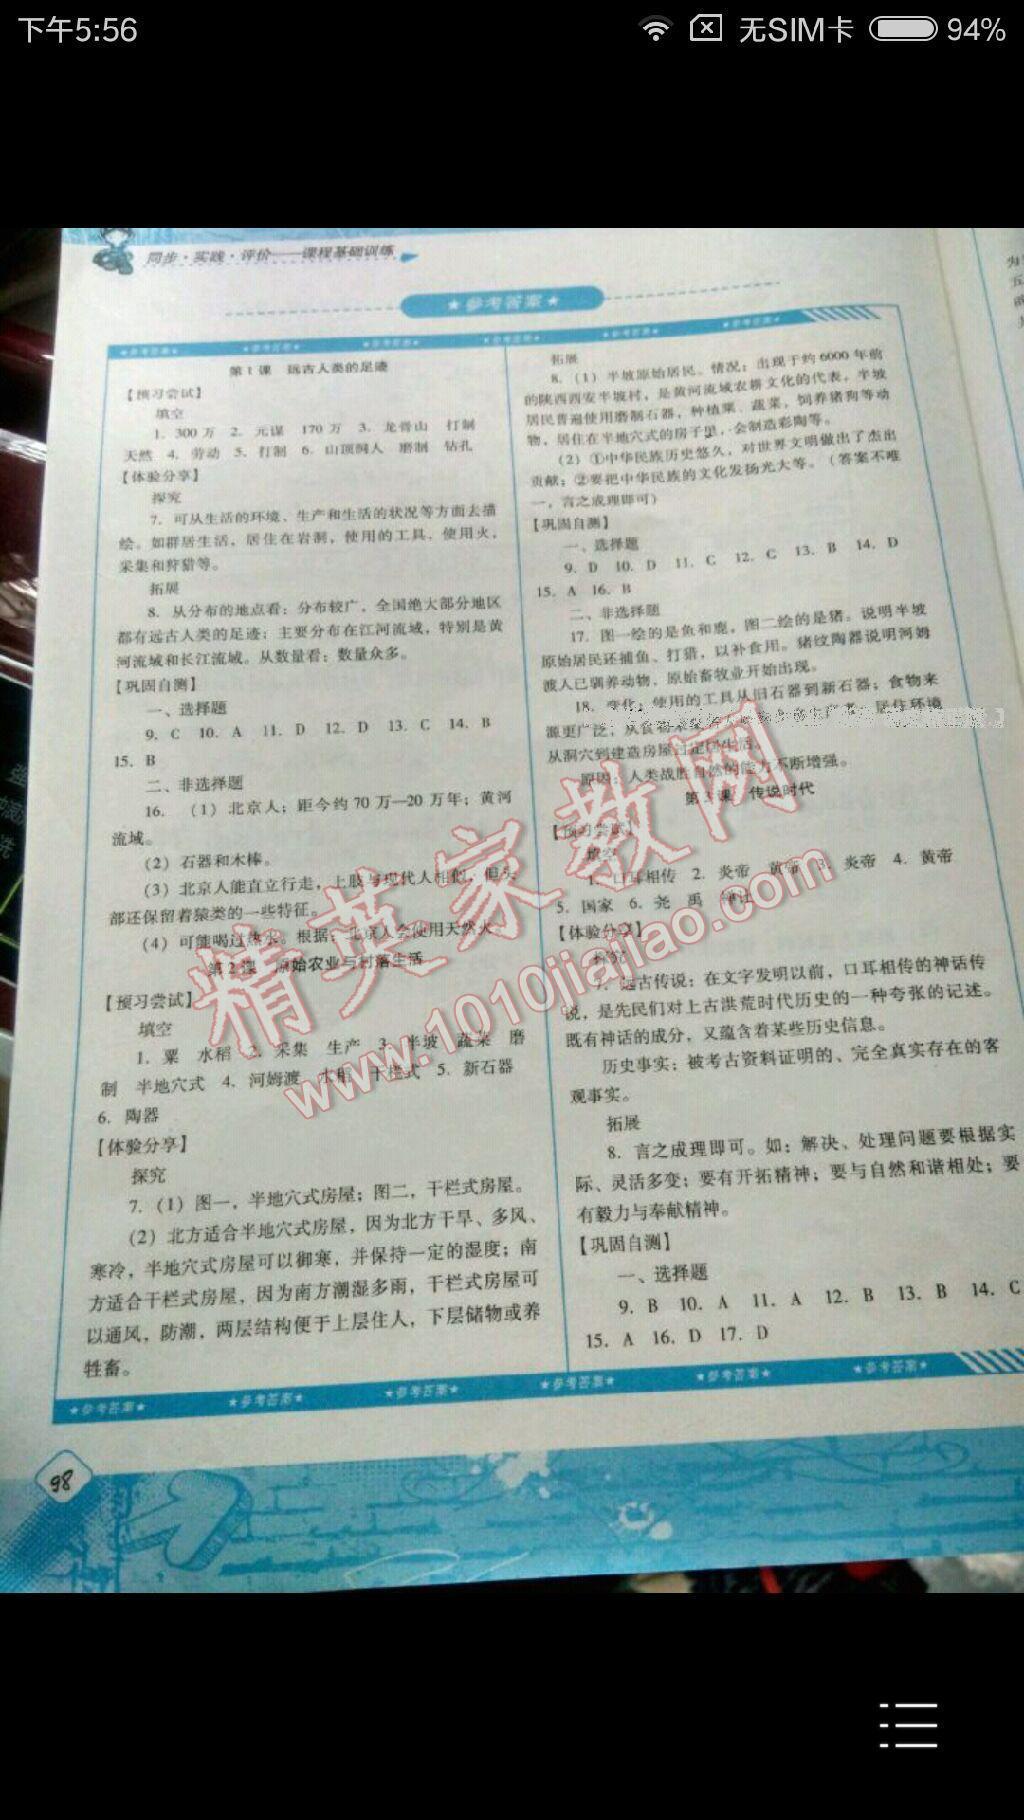 下午5:56
无SIM卡
94%
同步·实践·评价——课程基础训练
★参考答案★
第1课 远古人类的足迹
【预习尝试】
填空
1. 300万 2. 元谋 170万 3. 龙骨山 打制
天然 4. 劳动 5. 打制 6. 山顶洞人 磨制 钻孔
【体验分享】
探究
7. 可从生活的环境、生产和生活的状况等方面去描
绘。如群居生活，居住在岩洞，使用的工具，使用火，
采集和狩猎等。
拓展
8. 从分布的地点看：分布较广，全国绝大部分地区
都有远古人类的足迹；主要分布在江河流域，特别是黄
河流域和长江流域。从数量看：数量众多。
【巩固自测】
一、选择题
9. C 10. A 11. D 12. D 13. C 14. B
15. B
二、非选择题
16. （1）北京人；距今约70万—20万年；黄河
流域。
（2）石器和木棒。
（3）北京人能直立行走，上肢与现代人相似，但头
部还保留着猿类的一些特征。
（4）可能喝过热水。根据：北京人会使用天然火。
第2课 原始农业与村落生活
【预习尝试】
填空
1. 粟 水稻 2. 采集 生产 3. 半坡 蔬菜 磨
制 半地穴式 4. 河姆渡 水稻 干栏式 5. 新石器
6. 陶器
【体验分享】
探究
7.（1）图一，半地穴式房屋；图二，干栏式房屋。
（2）北方适合半地穴式房屋，因为北方干旱、多风、
寒冷，半地穴式房屋可以御寒，并保持一定的湿度；南
方适合干栏式房屋，因为南方潮湿多雨，干栏式房屋可
以通风，防潮，两层结构便于上层住人，下层储物或养
牲畜。
拓展
8.（1）半坡原始居民。情况：出现于约6000年前
的陕西西安半坡村，是黄河流域农耕文化的代表，半坡
居民普遍使用磨制石器，种植粟、蔬菜，饲养猪狗等动
物，居住在半地穴式的房子里，会制造彩陶等。
（2）①中华民族历史悠久，对世界文明做出了杰出
贡献；②要把中华民族的文化发扬光大等。（答案不唯
一，言之成理即可）
【巩固自测】
一、选择题
9. D 10. D 11. C 12. C 13. B 14. D
15. A 16. B
二、非选择题
17. 图一绘的是鱼和鹿，图二绘的是猪。说明半坡
原始居民还捕鱼、打猎，以补食用。猪纹陶器说明河姆
渡人已驯养动物，原始畜牧业开始出现。
18. 变化：使用的工具从旧石器到新石器；食物来
源更广泛，从食物采集 居住环境
从洞穴到建造房屋过定居生活。
原因：人类战胜自然的能力不断增强。
第3课 传说时代
【预习尝试】
填空
1. 口耳相传 2. 炎帝 黄帝 3. 炎帝 4. 黄帝
5. 国家 6. 尧 禹 禅让
【体验分享】
探究
7. 远古传说：在文字发明以前，口耳相传的神话传
说，是先民们对上古洪荒时代历史的一种夸张的记述。
既有神话的成分，又蕴含着某些历史信息。
历史事实：被考古资料证明的、完全真实存在的客
观事实。
拓展
8. 言之成理即可。如：解决、处理问题要根据实
际、灵活多变；要有开拓精神；要与自然和谐相处；要
有毅力与奉献精神。
【巩固自测】
一、选择题
9. B 10. A 11. A 12. B 13. B 14. C
15. A 16. D 17. D
98
精英家教网
www.1010jiajiao.com